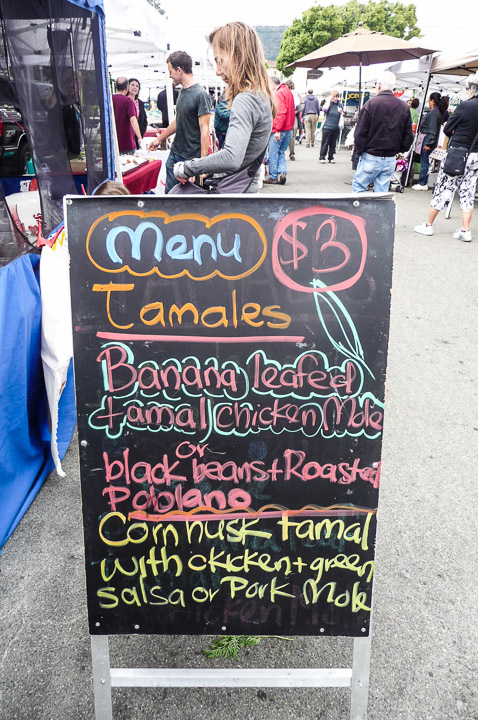 Menu $3
Tamales
Banana leafed
tamal chicken Mole
or
black beans + Roasted
Poblano
Corn husk tamal
with chicken + green
salsa or Pork Mole